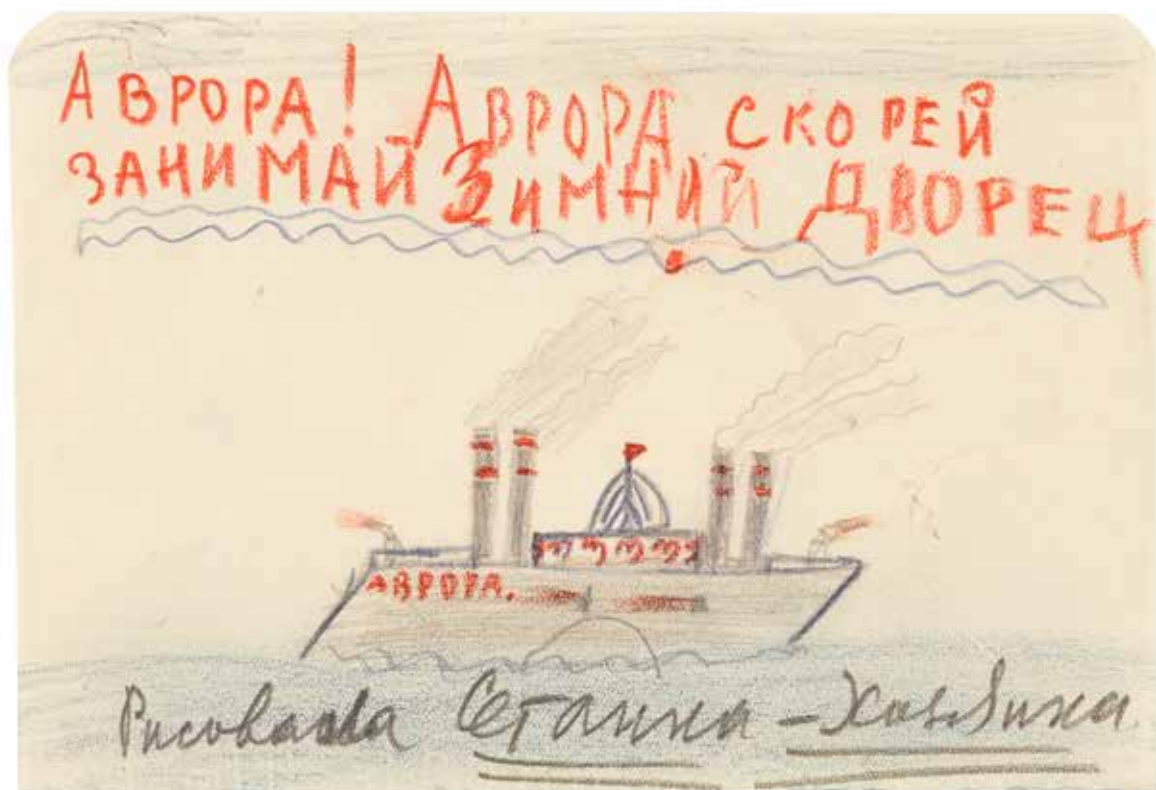 АВРОРА! АВРОРА СКОРЕЙ
ЗАНИМАЙ ЗИМНИЙ ДВОРЕЦ
АВРОРА.
Рисовала Сетанка – Хозяйка